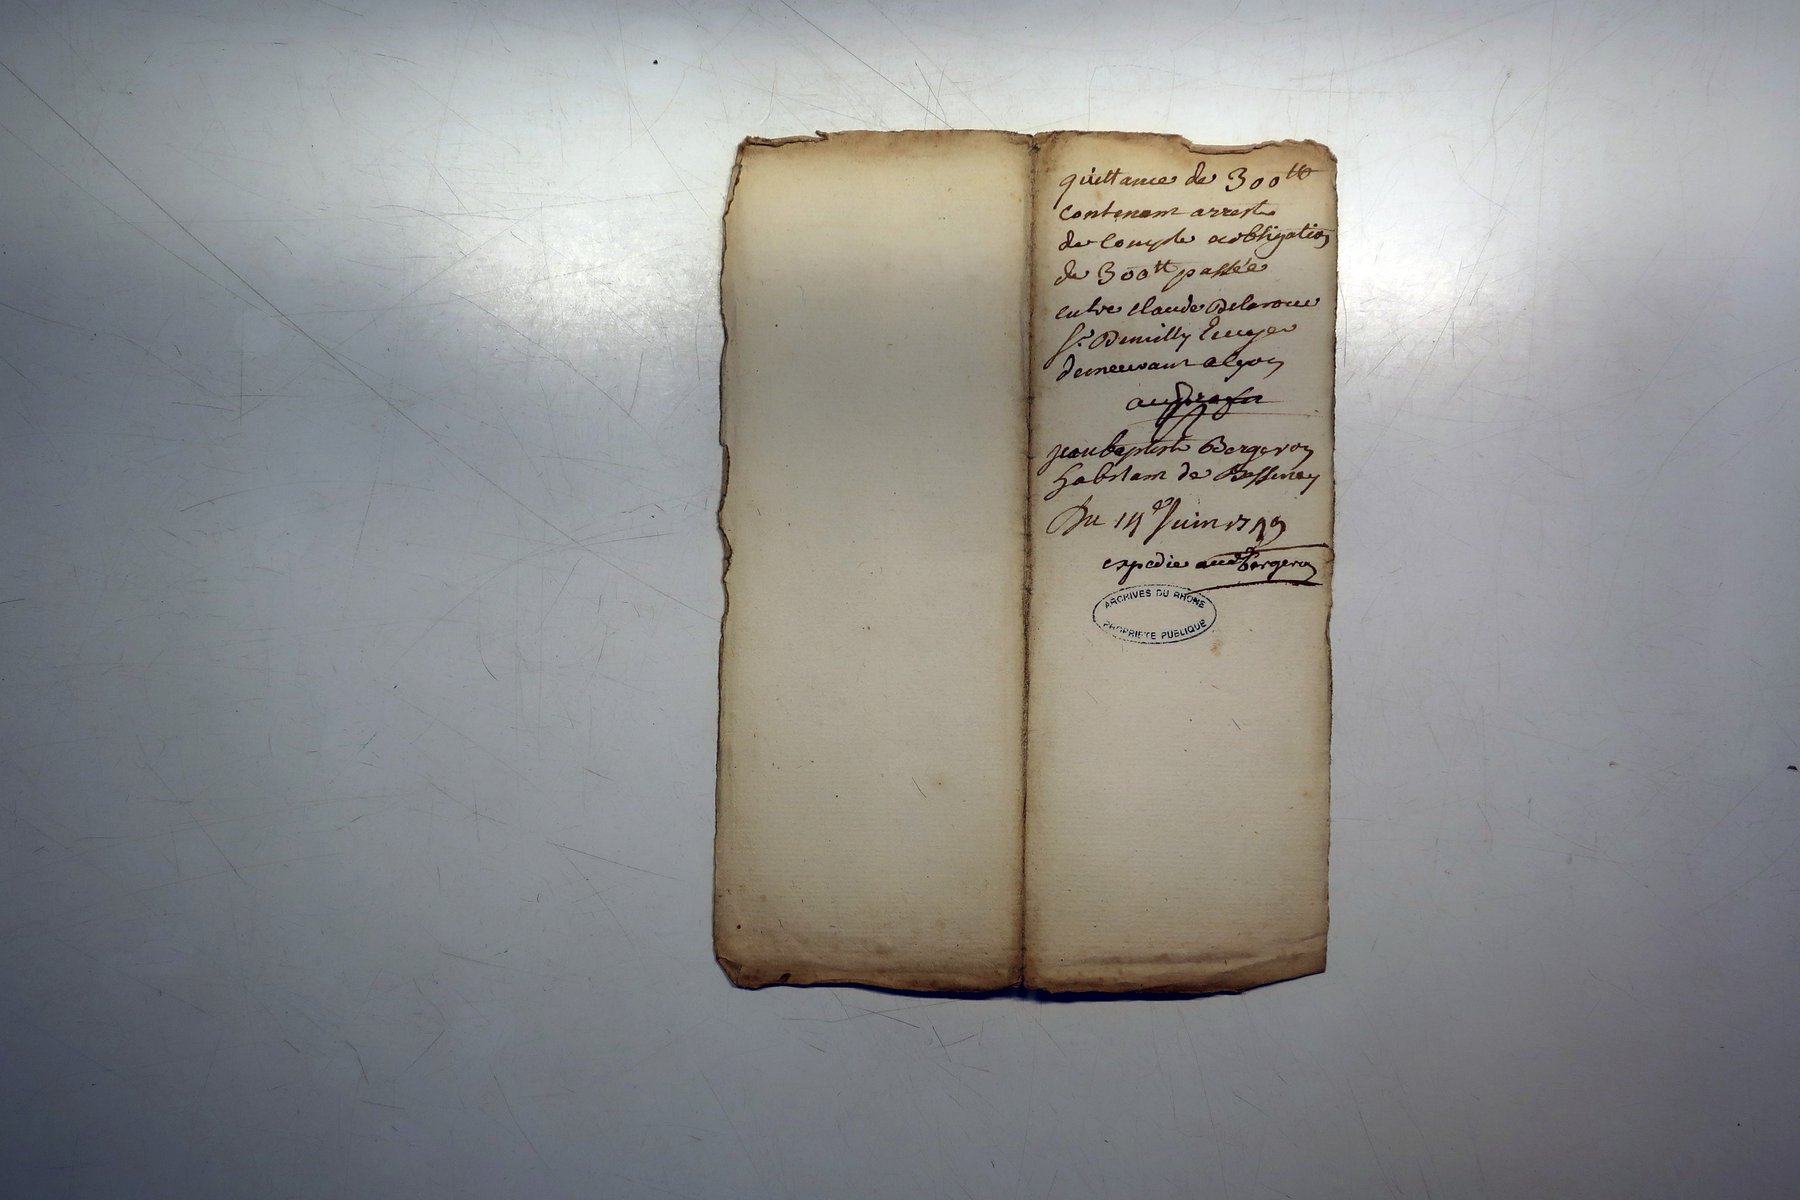 quittance de 300tt
contenant arresté
de compte et obligation
de 300tt passée
entre Claude Delaroue
Sr Demilly Ecuyer
demeurant a Lyon
jean baptiste Bergeron
habitant de Bessenay
Du 14e Juin
expedié aud bergeron
ARCHIVES DU RHONE
PROPRIETE PUBLIQUE